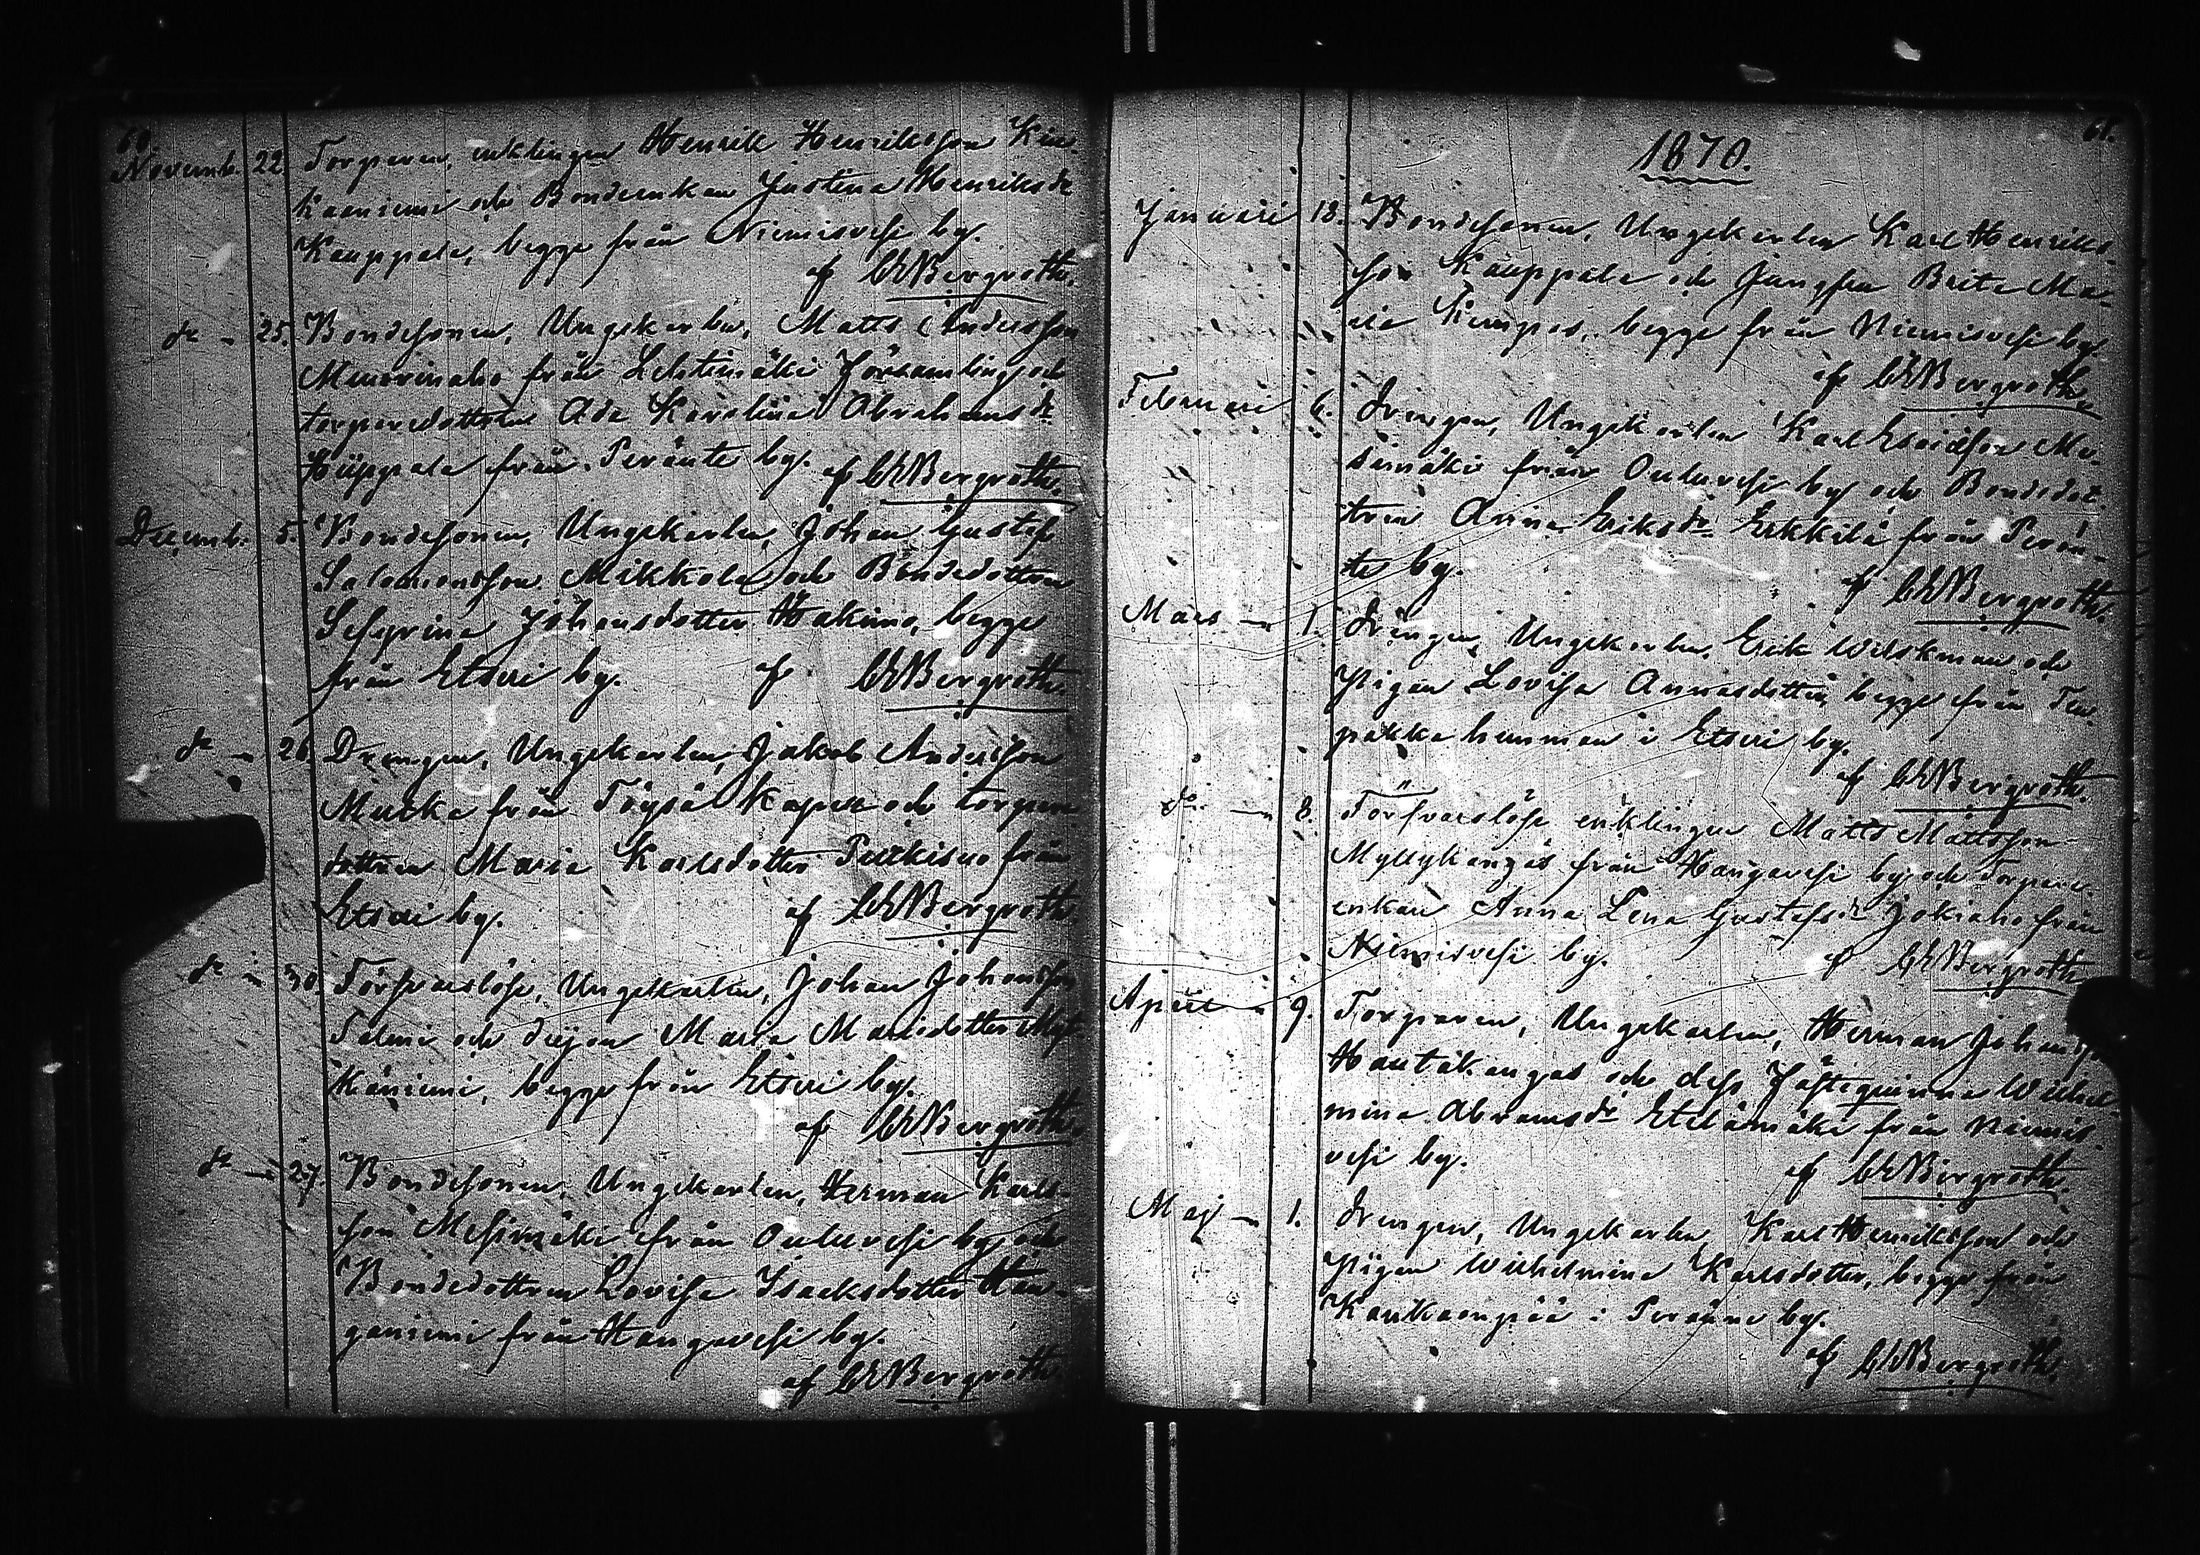 60.
Novemb. 22. Torparen, enklingen Henrik Henriksson Kin-
kaaniemi och Bondeenkan Justina Henriksdr
Kauppala, begge från Niemisvesi by.
af CEBergroth.
dr - 25. Bondesonen, Ungekarlen, Matts Andersson
Menormaho från Lehtimäki Församling och
torparedottren Ada Karolina Abrahamsdr
Hüppala från Peränte by. af CEBergroth.
Decemb. 5. Bondesonen, Ungekarlen, Johan Gustaf
Salomonsson Mikkola och Bondedottren
Sefgrina Johansdotter Hakimo, begge
från Etseri by. af CEBergroth.
dr - 26. Drengen, Ungekarlen, Jakob Andersson
Mucka från Töysä Kapell och torpare
dottren Maria Karlsdotter Pitkisuo från
Etseri by. af CEBergroth
dr - 30. Försvarslöse, Ungekarlen, Johan Johansson
Salmi och Piigan Maria Mattsdotter
Käniemi, begge från Etseri by.
af CEBergroth.
dr - 27. Bondesonen, Ungekarlen, Herman Karls-
son Mesimäki från Ouluvesi by och
Bondedottren Lovisa Isaksdotter Han-
ganiemi från Hangavesi by.
af CEBergroth.
61.
1870.
Januari 18. Bondesonen, Ungekarlen Karl Henriks-
son Kauppala och Jungfru Brita Ma-
ria Kempas, begge från Niemisvesi by.
af CEBergroth.
Februari 6. Drengen, Ungekarlen Karl Esaiasson Me-
simäki från Ouluvesi by och Bondedot-
tren Anna Eriksdr Erkkilä från Perän-
te by.
af CEBergroth.
Mars - 1. Drengen, Ungekarlen, Erik Wilskman och
Pigan Lovisa Annasdotter, begge från
pakka hemman i Etseri by.
af CEBergroth.
dr. - 8. Försvarslöse enklingen Matts Mattsson
Myllykangas från Hangavesi by och Torpare-
enkan Anna Lena Gustafsdr Jokiaho från
Niemisvesi by. af CEBergroth
April - 9. Torparen, Ungekarlen, Herman Johansson
Hautakangas och dess Fästeqvinna Wilhel-
mina Abramsdr Etelämäki från Niemis-
vesi by. af CEBergroth.
Maj - 1. Drengen, Ungekarlen Karl Henriksson och
Pigan Wilhelmina Karlsdotter, begge från
Kaukaanpää i Peränne by.
af CEBergroth.